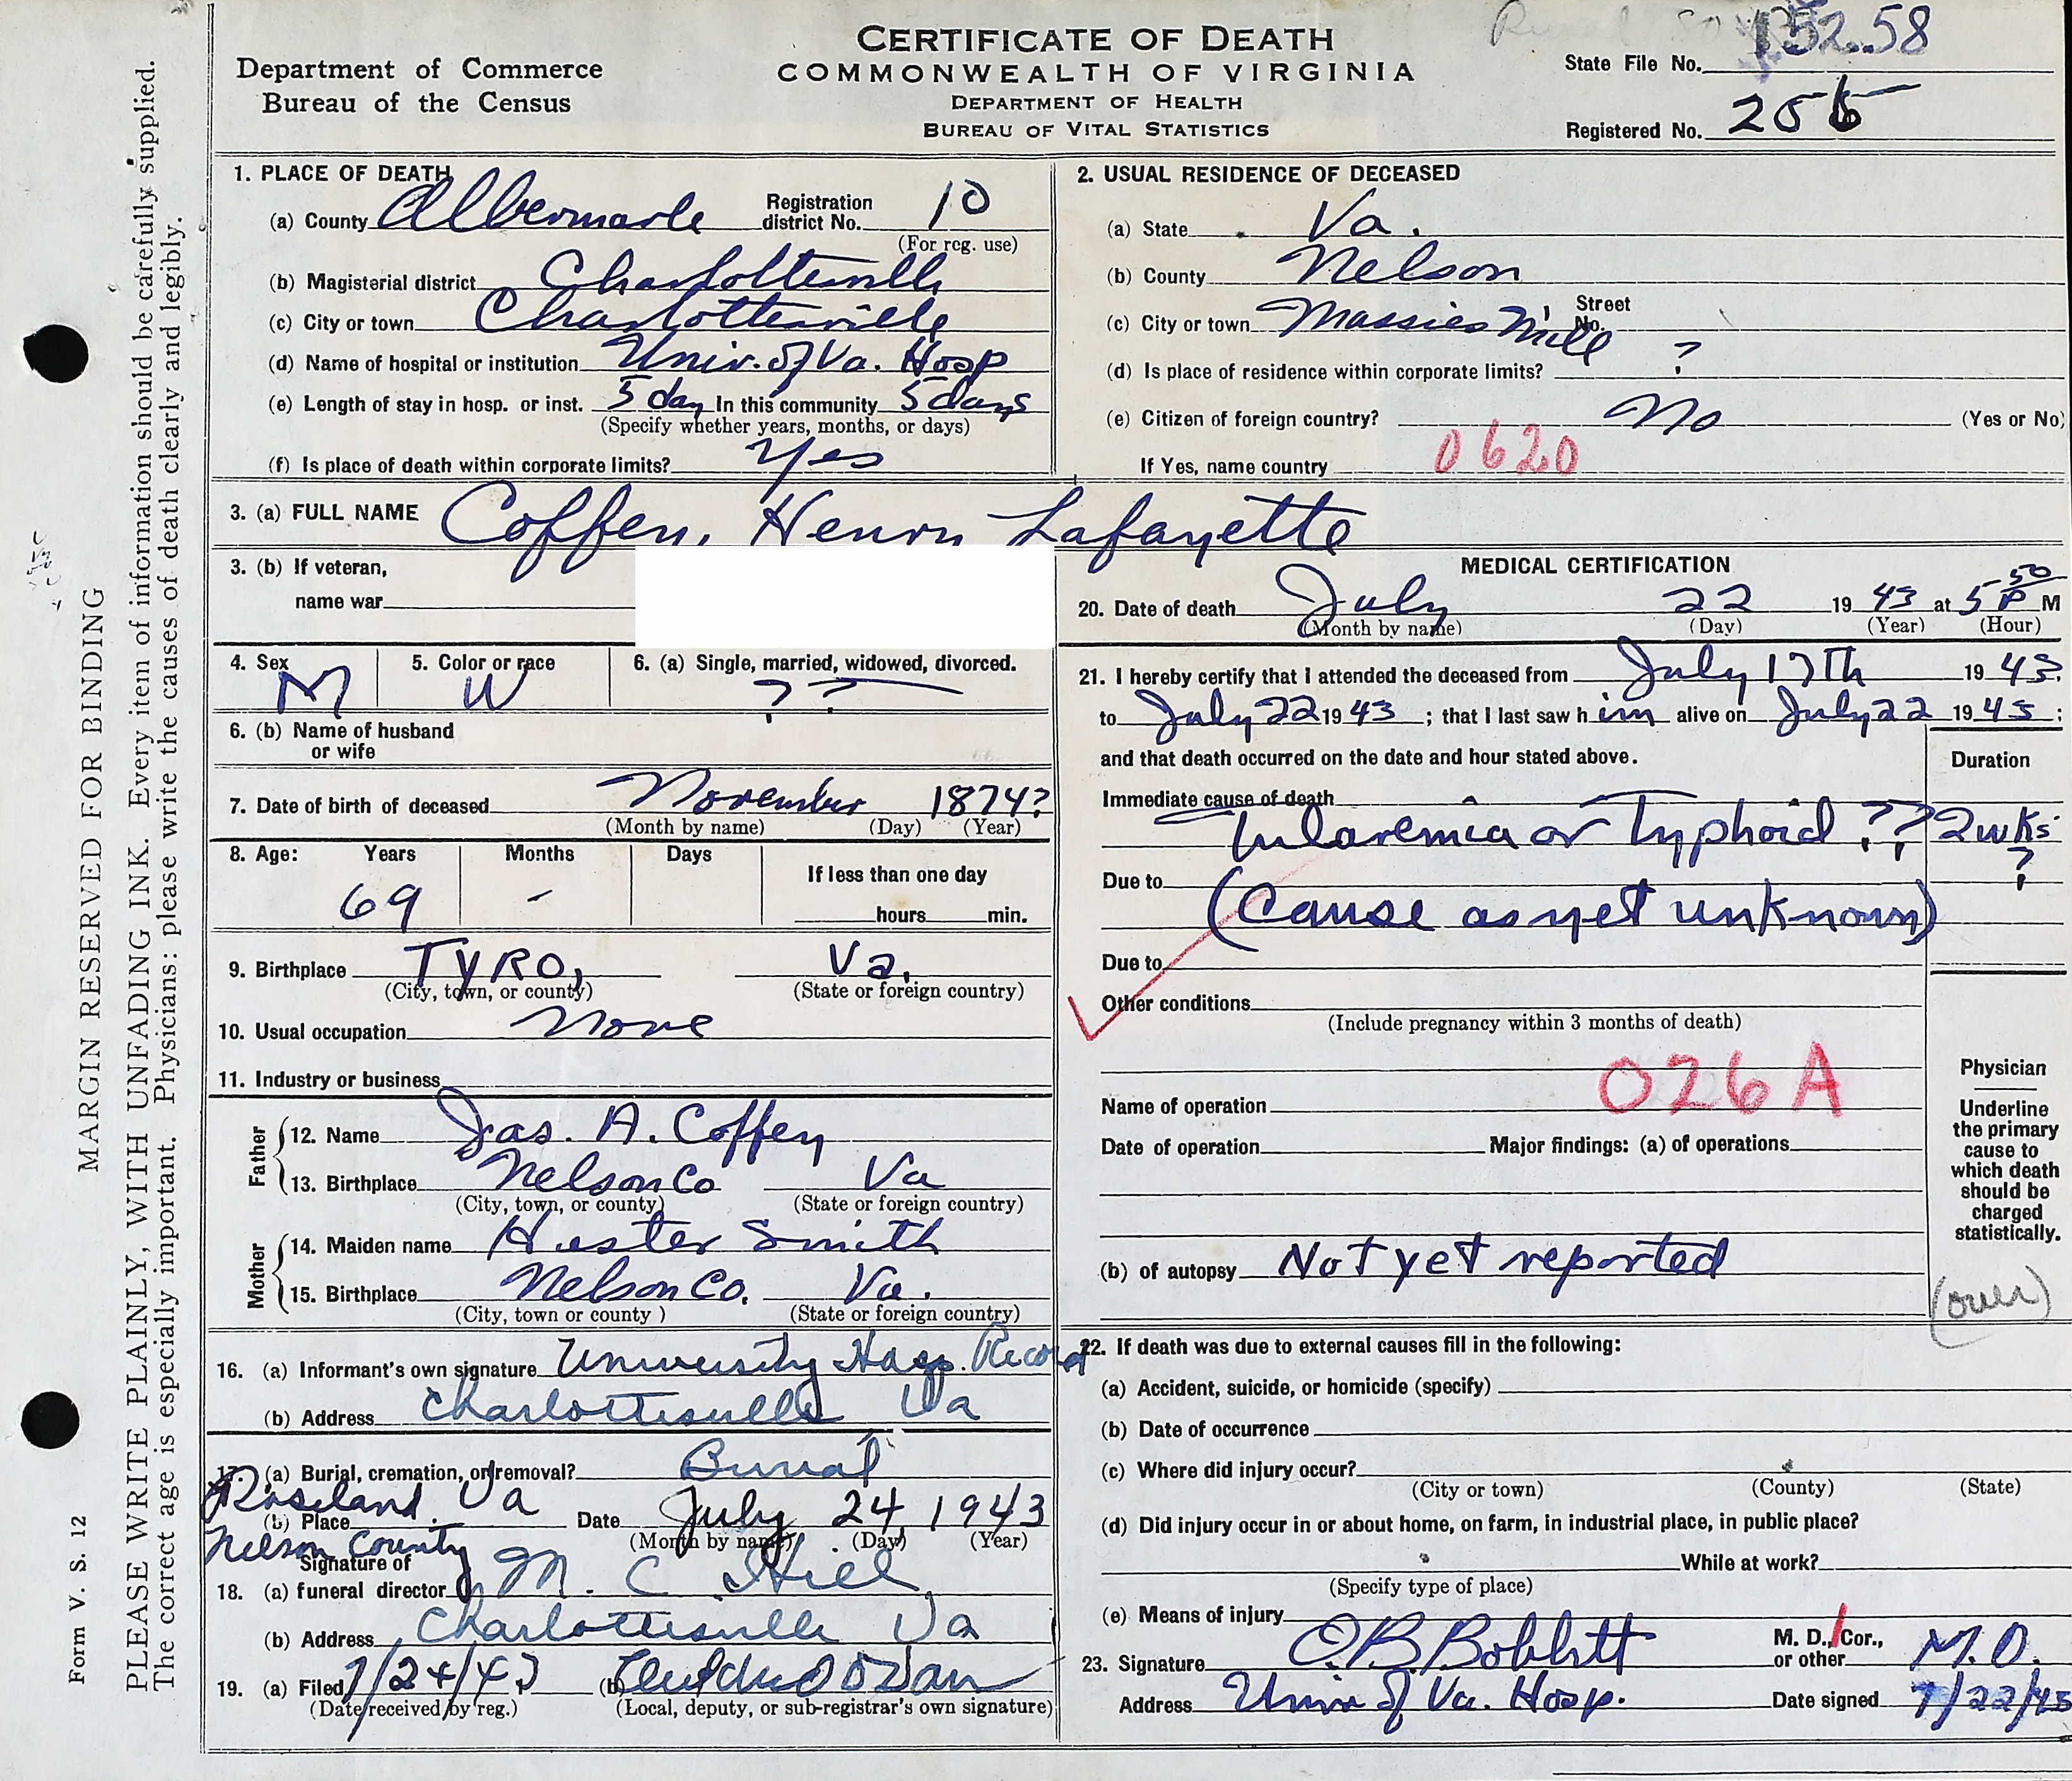 CERTIFICATE OF DEATH
COMMONWEALTH OF VIRGINIA
DEPARTMENT OF HEALTH
BUREAU OF VITAL STATISTICS
Department of Commerce
Bureau of the Census
State File No. 15258
Registered No. 255
1. PLACE OF DEATH
(a) County Albermarle Registration district No. 10
(For reg. use)
(b) Magisterial district Charlottesville
(c) City or town Charlottesville
(d) Name of hospital or institution Univ. of Va. Hosp
(e) Length of stay in hosp. or inst. 5 day In this community 5 days
(Specify whether years, months, or days)
(f) Is place of death within corporate limits? Yes
2. USUAL RESIDENCE OF DECEASED
(a) State Va.
(b) County Nelson
(c) City or town Massies Mill Street No.
(d) Is place of residence within corporate limits? ?
(e) Citizen of foreign country? No (Yes or No)
If Yes, name country 0620
3. (a) FULL NAME Coffey, Henry Lafayette
3. (b) If veteran,
name war
4. Sex M
5. Color or race W
6. (a) Single, married, widowed, divorced. ? ?
6. (b) Name of husband
or wife
7. Date of birth of deceased November 1874?
(Month by name) (Day) (Year)
8. Age: Years Months Days If less than one day
69 - hours min.
9. Birthplace TYRO, Va.
(City, town, or county) (State or foreign country)
10. Usual occupation None
11. Industry or business
Father
12. Name Jas. A. Coffey
13. Birthplace Nelson Co Va
(City, town, or county) (State or foreign country)
Mother
14. Maiden name Hester Smith
15. Birthplace Nelson Co. Va.
(City, town or county ) (State or foreign country)
16. (a) Informant's own signature University Hosp. Record
(b) Address Charlottesville Va
17. (a) Burial, cremation, or removal? Burial
Roseland Va
(b) Place Date July 24 1943
Nelson County (Month by name) (Day) (Year)
Signature of
18. (a) funeral director M. C. Hill
(b) Address Charlottesville Va
19. (a) Filed 7/24/43 (b)
(Date received by reg.) (Local, deputy, or sub-registrar's own signature)
MEDICAL CERTIFICATION
20. Date of death July 22 19 43 at 5 50 P M
(Month by name) (Day) (Year) (Hour)
21. I hereby certify that I attended the deceased from July 17th 19 43.
to July 22 19 43 ; that I last saw h im alive on July 22 19 43 ;
and that death occurred on the date and hour stated above.
Duration
Immediate cause of death
Tularemia or Typhoid ?? 2 wks ?
Due to
(Cause as yet unknown)
Due to
Other conditions
(Include pregnancy within 3 months of death)
026A
Name of operation
Date of operation Major findings: (a) of operations
(b) of autopsy Not yet reported
Physician
Underline
the primary
cause to
which death
should be
charged
statistically.
(over)
22. If death was due to external causes fill in the following:
(a) Accident, suicide, or homicide (specify)
(b) Date of occurrence
(c) Where did injury occur?
(City or town) (County) (State)
(d) Did injury occur in or about home, on farm, in industrial place, in public place?
While at work?
(Specify type of place)
(e) Means of injury
23. Signature O.B. Bobbitt M. D., Cor., or other M.D.
Address Univ of Va. Hosp. Date signed 7/22/43
MARGIN RESERVED FOR BINDING
PLEASE WRITE PLAINLY, WITH UNFADING INK. Every item of information should be carefully supplied.
The correct age is especially important. Physicians: please write the causes of death clearly and legibly.
Form V. S. 12